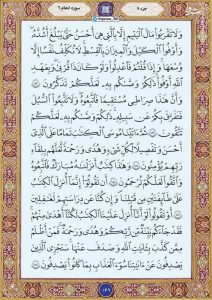 جزء ۸
سورة الانعام ۶
وَلَا تَقْرَبُوا مَالَ الْيَتِيمِ إِلَّا بِالَّتِي هِيَ أَحْسَنُ حَتَّىٰ يَبْلُغَ أَشُدَّهُ
وَأَوْفُوا الْكَيْلَ وَالْمِيزَانَ بِالْقِسْطِ لَا نُكَلِّفُ نَفْسًا إِلَّا
وُسْعَهَا وَإِذَا قُلْتُمْ فَاعْدِلُوا وَلَوْ كَانَ ذَا قُرْبَىٰ وَبِعَهْدِ
اللَّهِ أَوْفُوا ذَٰلِكُمْ وَصَّاكُمْ بِهِ لَعَلَّكُمْ تَذَكَّرُونَ
وَأَنَّ هَٰذَا صِرَاطِي مُسْتَقِيمًا فَاتَّبِعُوهُ وَلَا تَتَّبِعُوا السُّبُلَ
فَتَفَرَّقَ بِكُمْ عَنْ سَبِيلِهِ ذَٰلِكُمْ وَصَّاكُمْ بِهِ لَعَلَّكُمْ
تَتَّقُونَ ثُمَّ آتَيْنَا مُوسَى الْكِتَابَ تَمَامًا عَلَى الَّذِي
أَحْسَنَ وَتَفْصِيلًا لِكُلِّ شَيْءٍ وَهُدًى وَرَحْمَةً لَعَلَّهُمْ بِلِقَاءِ
رَبِّهِمْ يُؤْمِنُونَ وَهَٰذَا كِتَابٌ أَنْزَلْنَاهُ مُبَارَكٌ فَاتَّبِعُوهُ
وَاتَّقُوا لَعَلَّكُمْ تُرْحَمُونَ أَنْ تَقُولُوا إِنَّمَا أُنْزِلَ الْكِتَابُ
عَلَىٰ طَائِفَتَيْنِ مِنْ قَبْلِنَا وَإِنْ كُنَّا عَنْ دِرَاسَتِهِمْ لَغَافِلِينَ
أَوْ تَقُولُوا لَوْ أَنَّا أُنْزِلَ عَلَيْنَا الْكِتَابُ لَكُنَّا أَهْدَىٰ مِنْهُمْ
فَقَدْ جَاءَكُمْ بَيِّنَةٌ مِنْ رَبِّكُمْ وَهُدًى وَرَحْمَةٌ فَمَنْ أَظْلَمُ
مِمَّنْ كَذَّبَ بِآيَاتِ اللَّهِ وَصَدَفَ عَنْهَا سَنَجْزِي الَّذِينَ
يَصْدِفُونَ عَنْ آيَاتِنَا سُوءَ الْعَذَابِ بِمَا كَانُوا يَصْدِفُونَ
۱۴۹